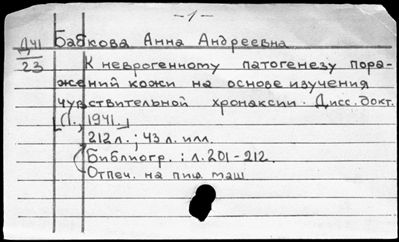 -1-
Д41 Бабкова Анна Андреевна
23 К неврогенному патогенезу пора-
жений кожи на основе изучения
чувствительной хронаксии. Дисс. докт.
[Л., 1941.]
212 л.; 43 л. илл.
Библиогр.: л. 201-212.
Отпеч. на пиш маш